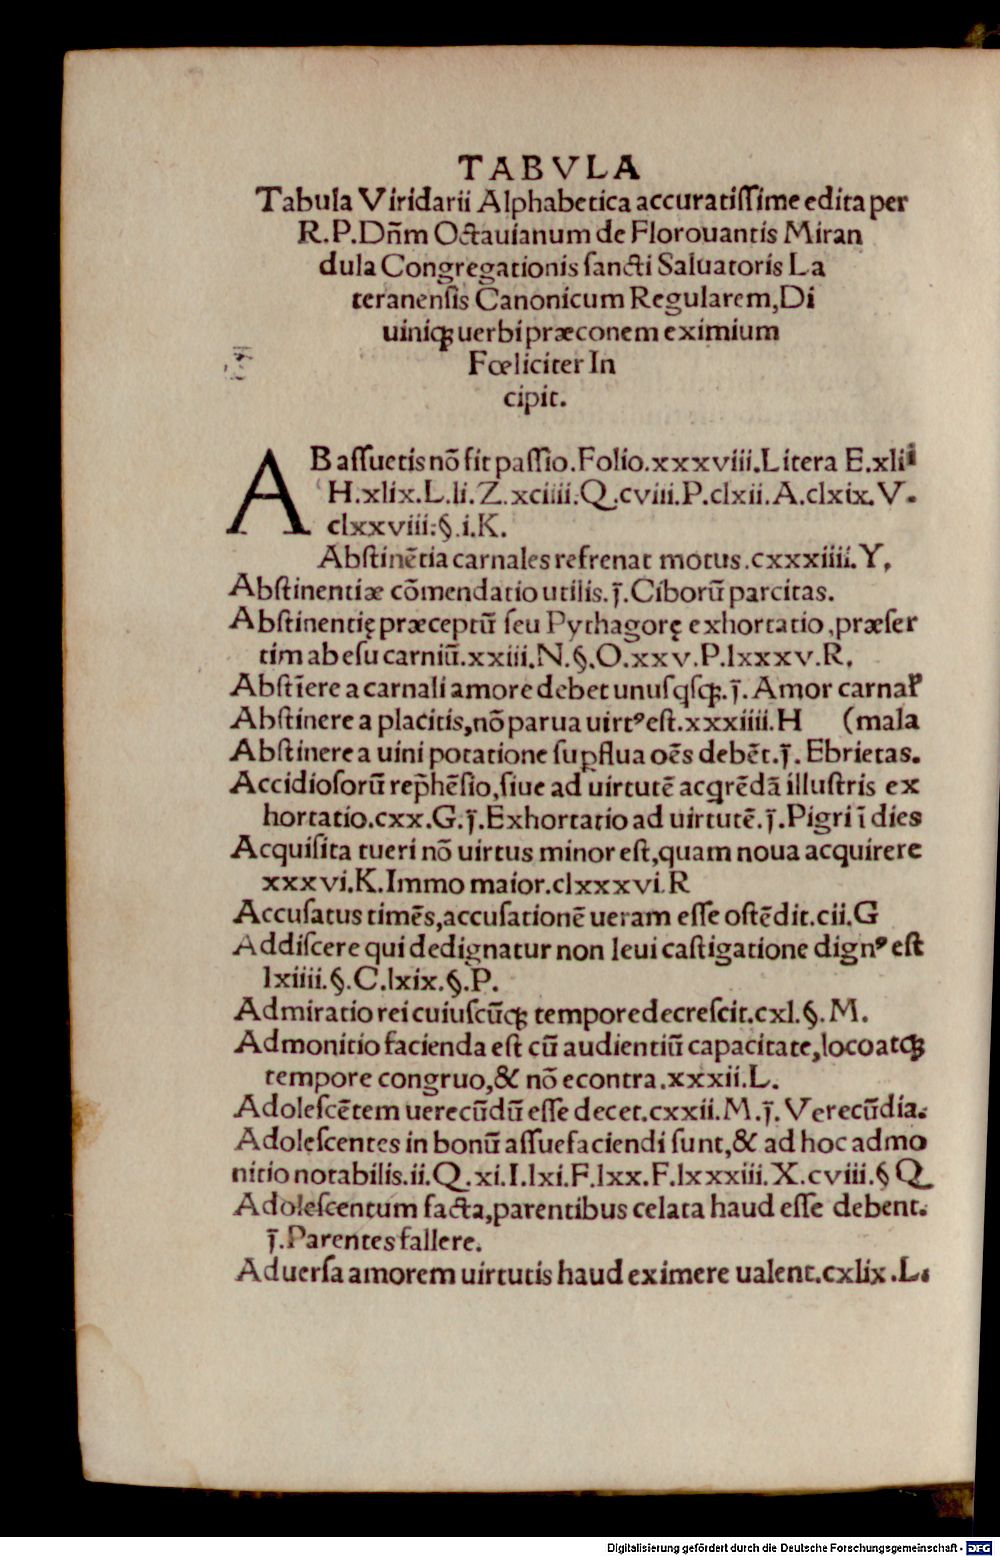 TABVLA
Tabula Viridarii Alphabetica accuratiſſime edita per
R.P.Dñm Octauianum de Florouantis Miran
dula Congregationis ſancti Saluatoris La
teranenſis Canonicum Regularem,Di
uiniqꝫ uerbi præconem eximium
Fœliciter In
cipit.
AB aſſuetis nō fit paſſio.Folio.xxxviii.Litera E.xlii
H.xlix.L.li.Z.xciiii.Q.cviii.P.clxii.A.clxix.V.
clxxviii.§.i.K.
Abſtinētia carnales refrenat motus.cxxxiiii.Y.
Abſtinentiæ cōmendatio utilis.ſ̄.Ciborū parcitas.
Abſtinentię præceptū ſeu Pythagorę exhortatio,præſer
tim ab eſu carniū.xxiii.N.§.O.xxv.P.lxxxv.R.
Abſtīere a carnali amore debet unuſqſqꝫ.ſ̄.Amor carnaƚ
Abſtinere a placitis,nō parua uirtꝰ eſt.xxxiiii.H (mala
Abſtinere a uini potatione ſuꝑflua oēs debēt.ſ̄.Ebrietas.
Accidioſorū rep̄hēſio,ſiue ad uirtutē acqrēdā illuſtris ex
hortatio.cxx.G.ſ̄.Exhortatio ad uirtutē.ſ̄.Pigri ī dies
Acquiſita tueri nō uirtus minor eſt,quam noua acquirere
xxxvi.K.Immo maior.clxxxvi.R
Accuſatus timēs,accuſationē ueram eſſe oſtēdit.cii.G
Addiſcere qui dedignatur non leui caſtigatione dignꝰ eſt
lxiiii.§.C.lxix.§.P.
Admiratio rei cuiuſcūqꝫ tempore decreſcit.cxl.§.M.
Admonitio facienda eſt cū audientiū capacitate,loco atqꝫ
tempore congruo,& nō econtra.xxxii.L.
Adoleſcētem uerecūdū eſſe decet.cxxii.M.ſ̄.Verecūdia.
Adoleſcentes in bonū aſſuefaciendi ſunt,& ad hoc admo
nitio notabilis.ii.Q.xi.I.lxi.F.lxx.F.lxxxiii.X.cviii.§ Q
Adoleſcentum facta,parentibus celata haud eſſe debent.
ſ̄.Parentes fallere.
Aduerſa amorem uirtutis haud eximere ualent.cxlix.L.
Digitalisierung gefördert durch die Deutsche Forschungsgemeinschaft - DFG